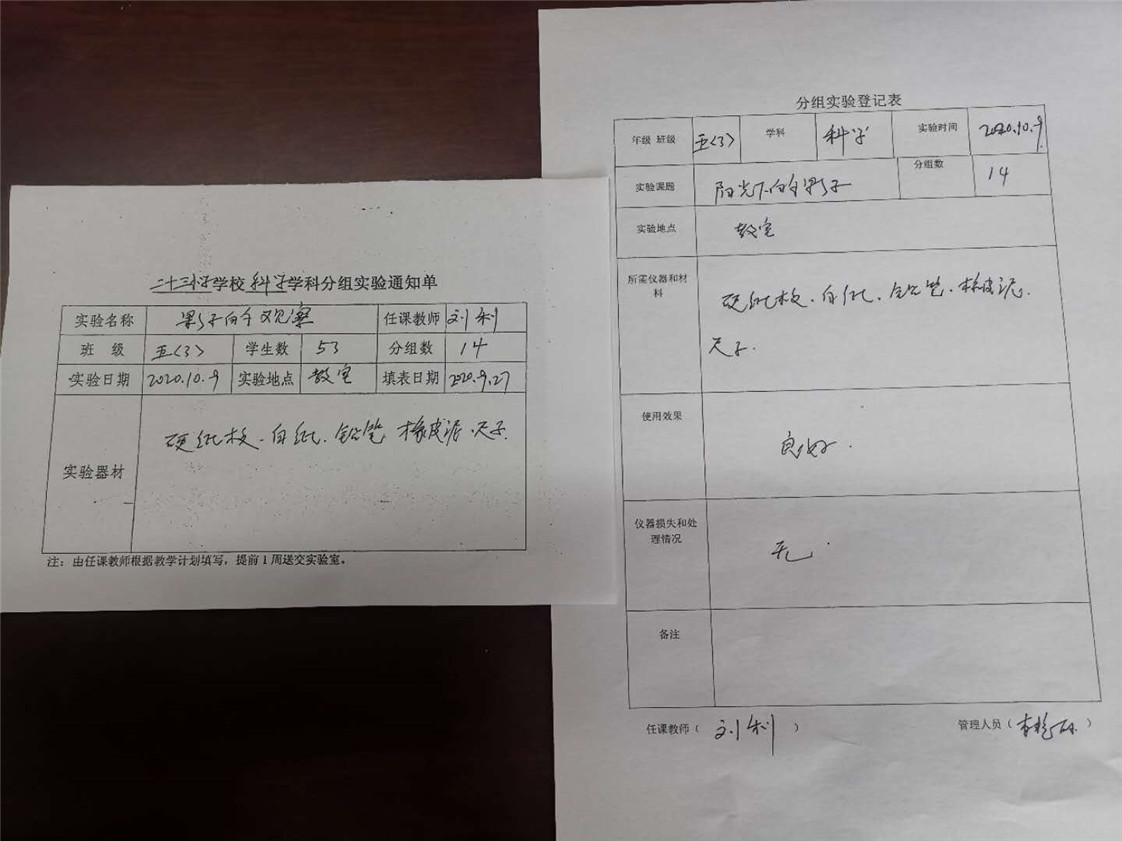 二十三小学学校科学学科分组实验通知单
实验名称 影子的观察 任课教师 刘利
班 级 五〈3〉 学生数 53 分组数 14
实验日期 2020.10.9 实验地点 教室 填表日期 2020.9.27
实验器材 硬纸板.白纸.铅笔 橡皮泥.尺子.
注：由任课教师根据教学计划填写，提前1周送交实验室。
分组实验登记表
年级 班级 五〈3〉 学科 科学 实验时间 2020.10.9
实验课题 阳光下的影子 分组数 14
实验地点 教室
所需仪器和材料 硬纸板.白纸.铅笔.橡皮泥.
尺子.
使用效果 良好.
仪器损失和处理情况 无.
备注
任课教师（ 刘利 ） 管理人员（ 李 ）